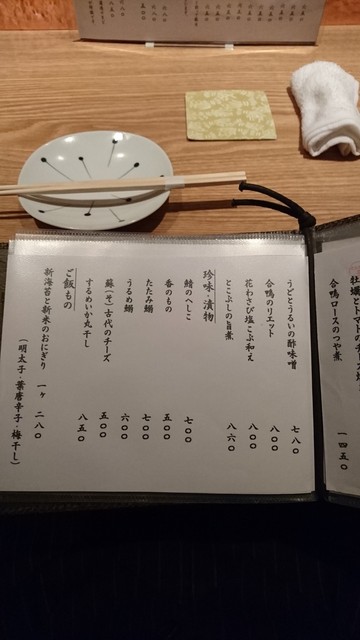 トマトの
合鴨ロースのつや煮 一四五〇
うどとうるいの酢味噌 七八〇
合鴨のリエット 八〇〇
花わさび塩こぶ和え 八〇〇
とこぶしの旨煮 八六〇
珍味・漬物
鯖のへしこ 七〇〇
香のもの 五〇〇
たたみ鰯 七〇〇
うるめ鰯 六〇〇
蘇(そ)古代のチーズ 五〇〇
するめいか丸干し 八五〇
ご飯もの
新海苔と新米のおにぎり 一ヶ 二八〇
(明太子・葉唐辛子・梅干し)